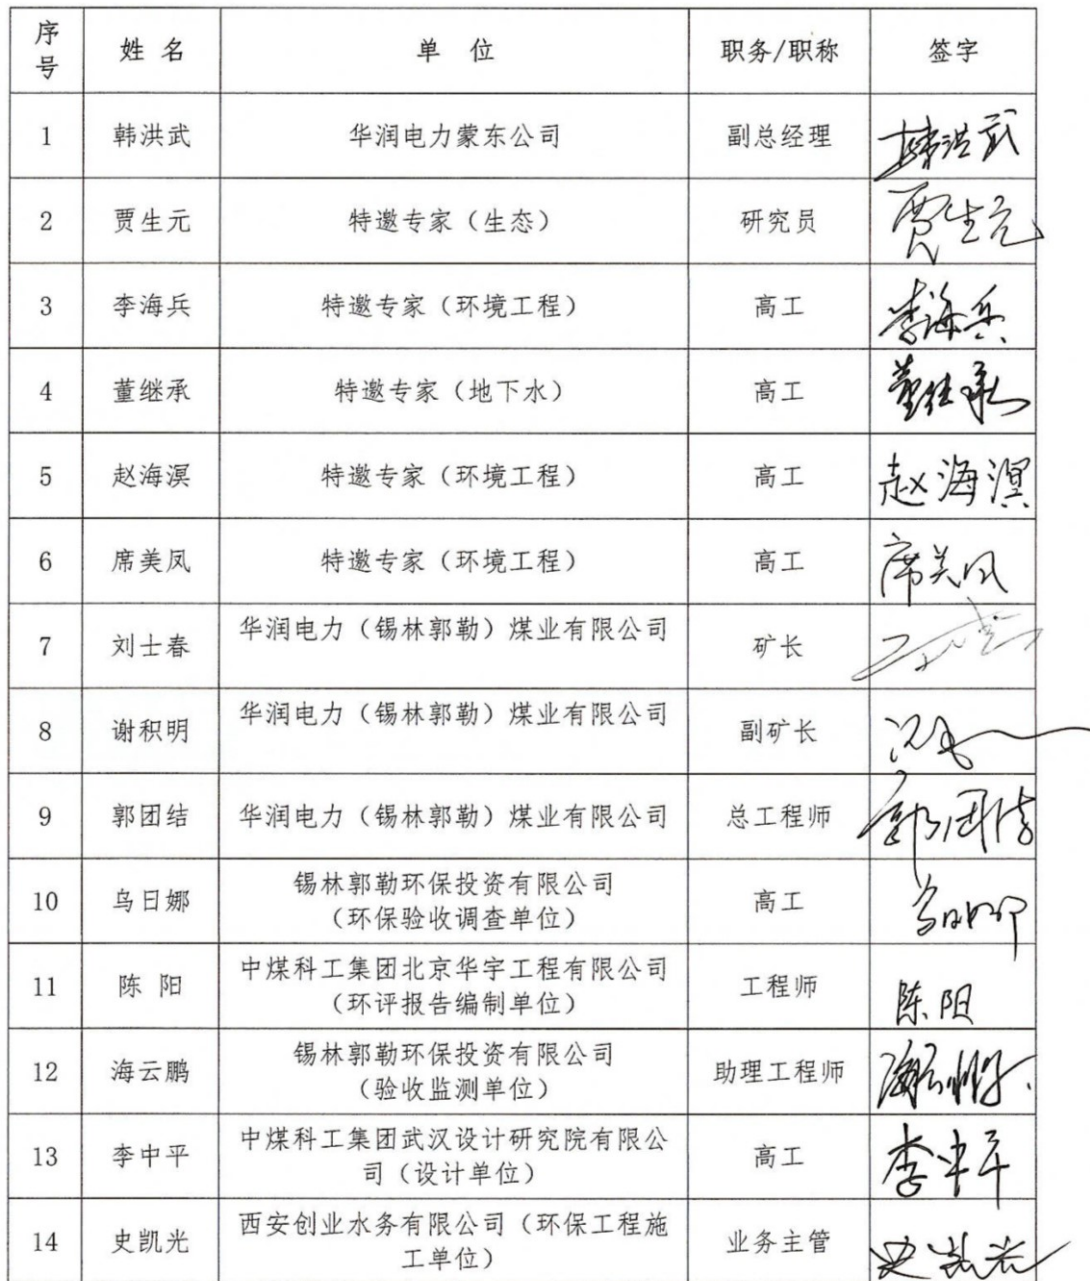 序号 姓 名 单 位 职务/职称 签字
1 韩洪武 华润电力蒙东公司 副总经理 韩洪武
2 贾生元 特邀专家（生态） 研究员 贾生元
3 李海兵 特邀专家（环境工程） 高工 李海兵
4 董继承 特邀专家（地下水） 高工 董继承
5 赵海溟 特邀专家（环境工程） 高工 赵海溟
6 席美凤 特邀专家（环境工程） 高工 席美凤
7 刘士春 华润电力（锡林郭勒）煤业有限公司 矿长
8 谢积明 华润电力（锡林郭勒）煤业有限公司 副矿长
9 郭团结 华润电力（锡林郭勒）煤业有限公司 总工程师 郭团结
10 乌日娜 锡林郭勒环保投资有限公司
（环保验收调查单位） 高工 乌日娜
11 陈 阳 中煤科工集团北京华宇工程有限公司
（环评报告编制单位） 工程师 陈阳
12 海云鹏 锡林郭勒环保投资有限公司
（验收监测单位） 助理工程师 海云鹏
13 李中平 中煤科工集团武汉设计研究院有限公
司（设计单位） 高工 李中平
14 史凯光 西安创业水务有限公司（环保工程施
工单位） 业务主管 史凯光